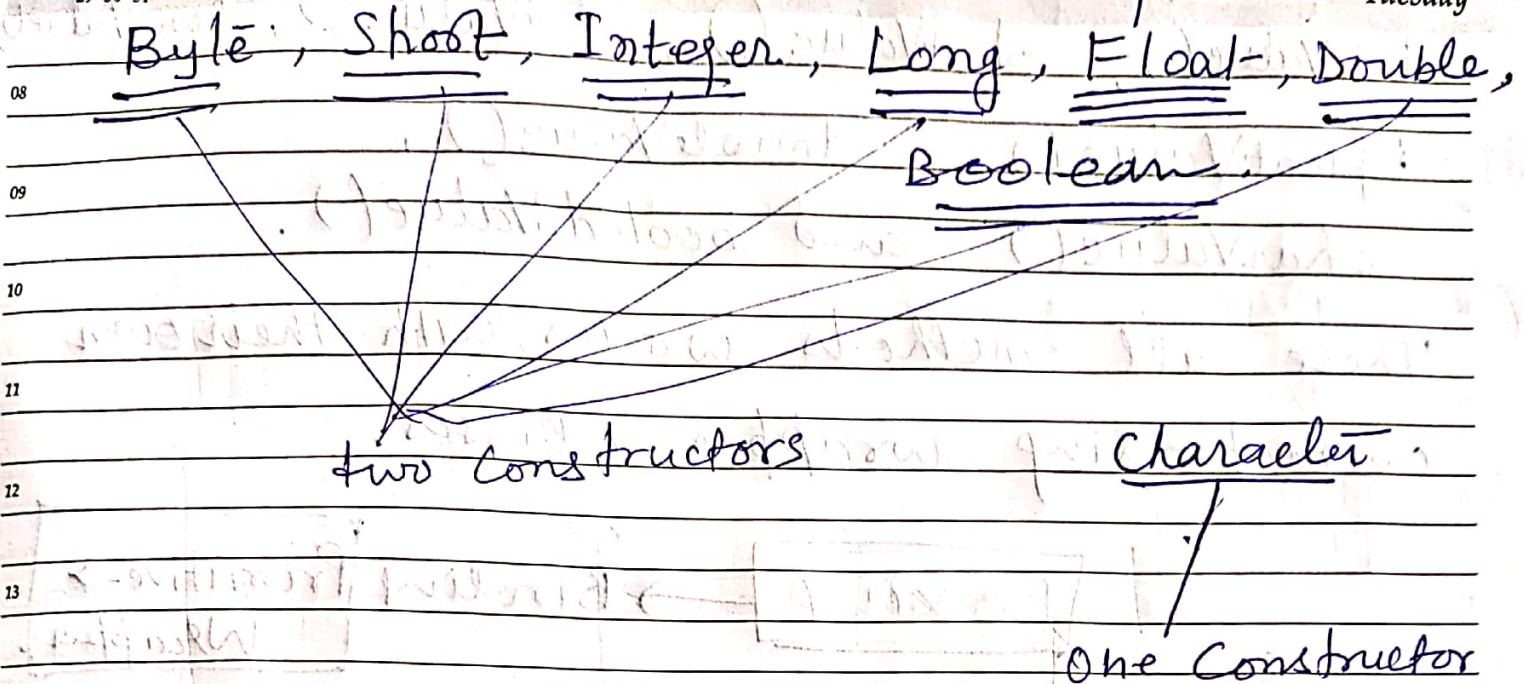 Tuesday
Byte, Short, Integer, Long, Float, Double,
08
Boolean.
09
10
11
two constructors
Character.
12
13
one constructor